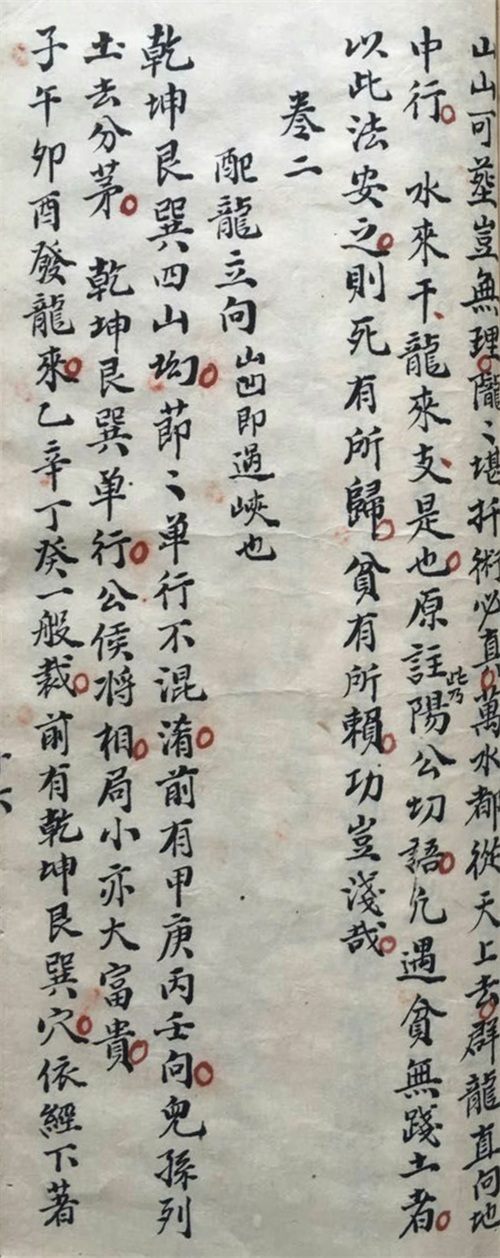 山山可塟豈無理隴〻堪扦術必真萬水都從天上去群龍直向地
中行 水來干龍來支是也原註此乃陽公切語凢遇貧無踐土者
以此法安之則死有所歸貧有所賴功豈淺哉
卷二
配龍立向山凹即過峽也
乾坤艮巽四山坳節〻单行不混淆前有甲庚丙壬向兒孫列
土去分茅 乾坤艮巽单行公侯将相局小亦大富貴
子午卯酉發龍來乙辛丁癸一般裁前有乾坤艮巽穴依經下著
十六